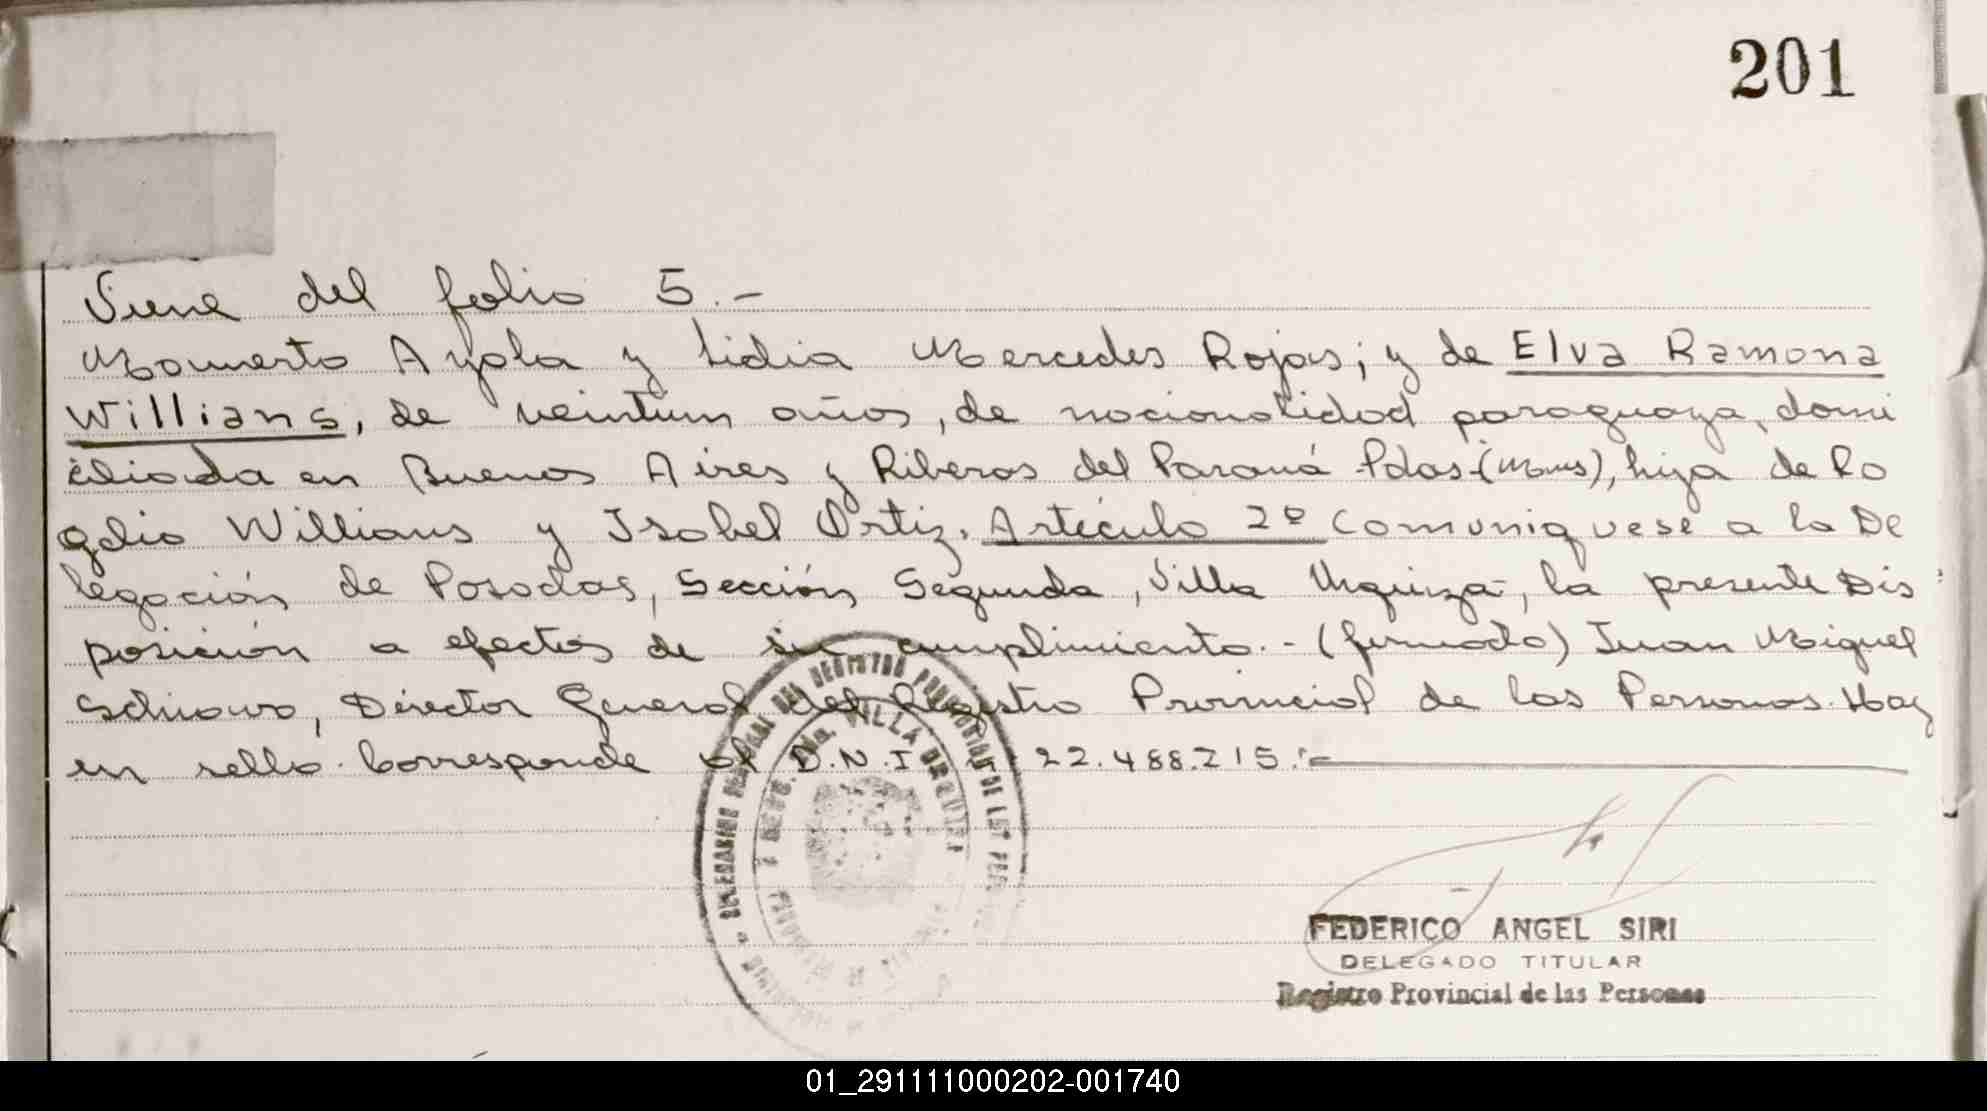 201
Viene del folio 5.-
Mamerto Ayala y Lidia Mercedes Rojas; y de Elva Ramona
Willians, de veintiun años, de nacionalidad paraguaya, domi
ciliada en Buenos Aires y Riberas del Paraná -Pdas-(Mnes), hija de Ro
gelio Willians y Isabel Ortiz. Artículo 2º Comuniquese a la De
legación de Posadas, Sección Segunda, Villa Urquiza-, la presente Dis
posición a efectos de su cumplimiento.- (firmado) Juan Miguel
Director General del Registro Provincial de las Personas. Hay
un sello. Corresponde al D.N.I. 22.488.215.-
VILLA URQUIZA
FEDERICO ANGEL SIRI
DELEGADO TITULAR
Registro Provincial de las Personas
01_291111000202-001740